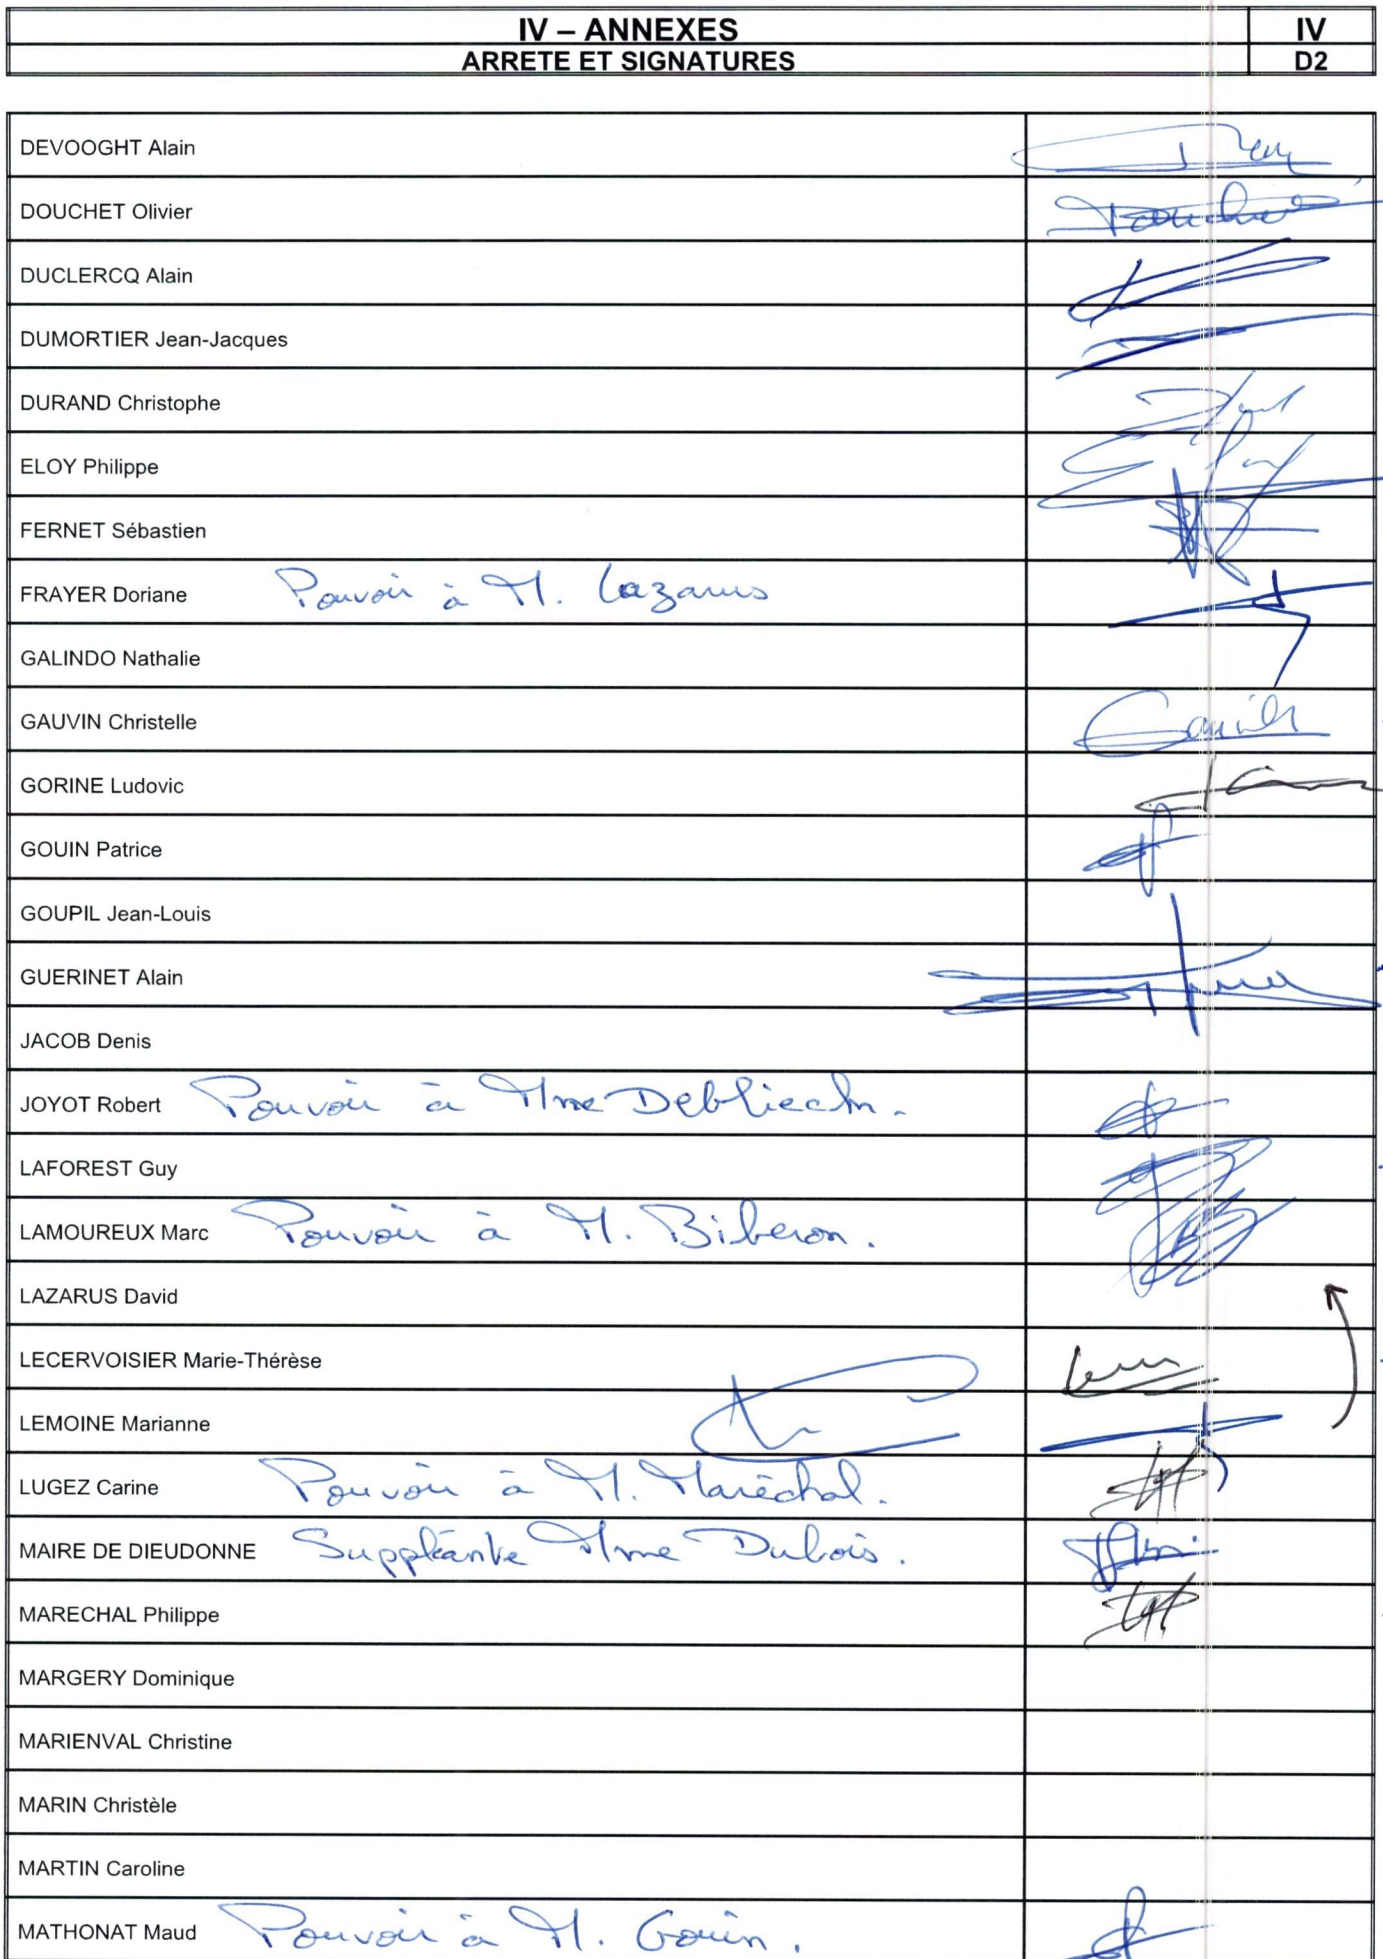 IV – ANNEXES IV
ARRETE ET SIGNATURES D2
DEVOOGHT Alain
DOUCHET Olivier
DUCLERCQ Alain
DUMORTIER Jean-Jacques
DURAND Christophe
ELOY Philippe
FERNET Sébastien
FRAYER Doriane Pouvoir à M. Lazarus
GALINDO Nathalie
GAUVIN Christelle
GORINE Ludovic
GOUIN Patrice
GOUPIL Jean-Louis
GUERINET Alain
JACOB Denis
JOYOT Robert Pouvoir à Mme
LAFOREST Guy
LAMOUREUX Marc Pouvoir à M. Biberon.
LAZARUS David
LECERVOISIER Marie-Thérèse
LEMOINE Marianne
LUGEZ Carine Pouvoir à M. Maréchal.
MAIRE DE DIEUDONNE Suppléante Mme Dubois.
MARECHAL Philippe
MARGERY Dominique
MARIENVAL Christine
MARIN Christèle
MARTIN Caroline
MATHONAT Maud Pouvoir à M. Gouin.